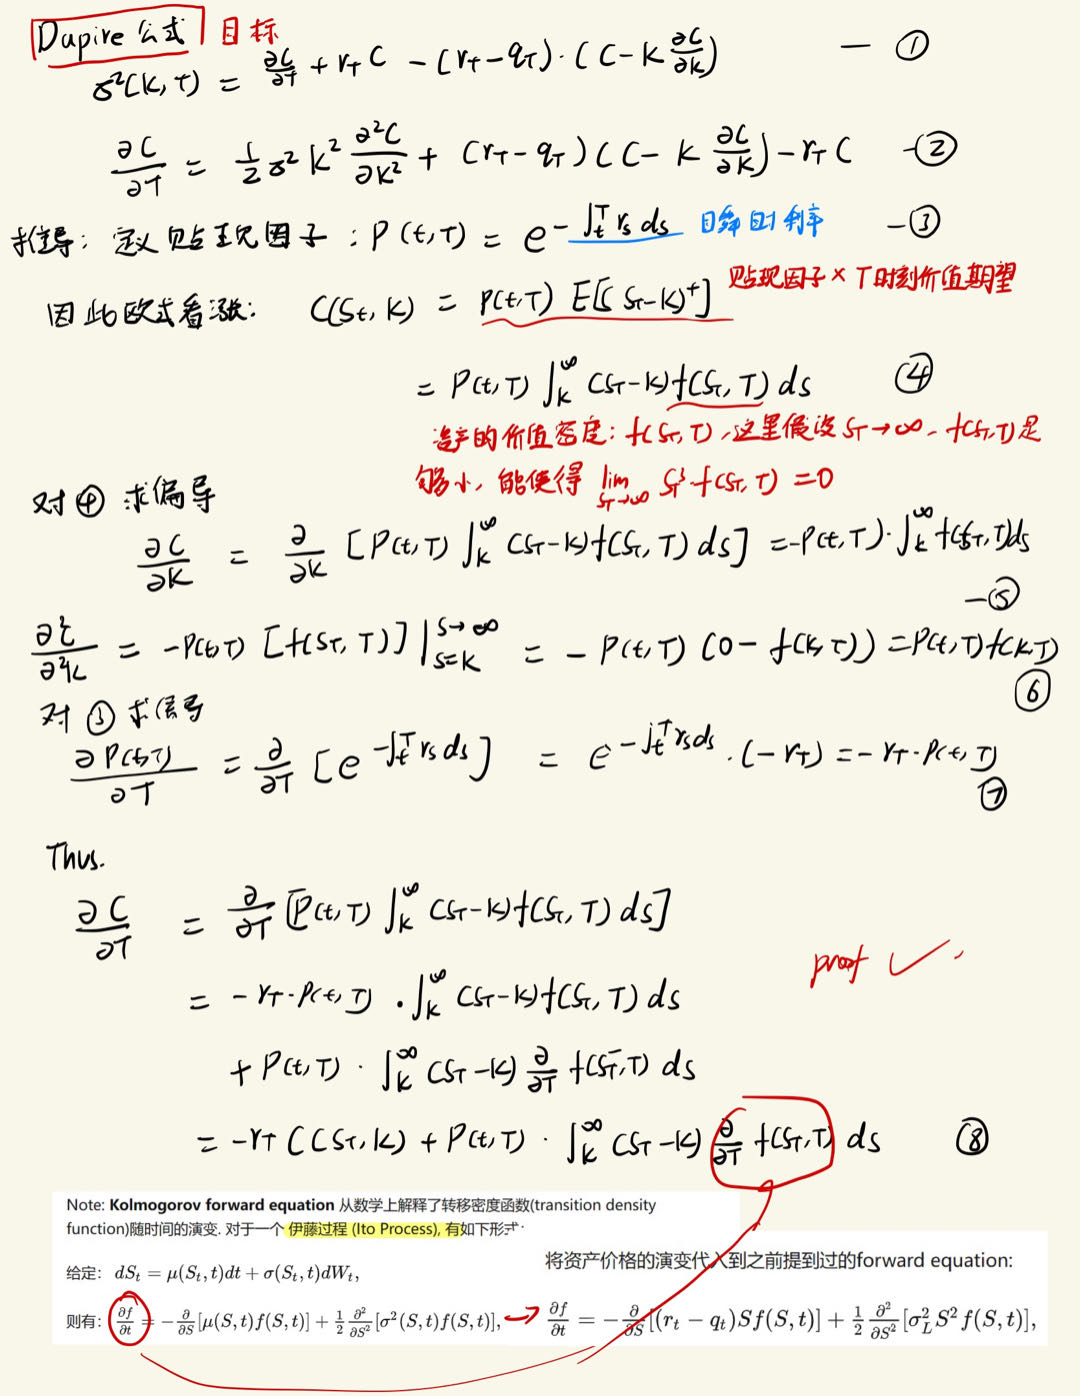 Dupire 公式 目标
σ²(K,T) = ∂C/∂T + r_T C - (r_T - q_T)·(C - K ∂C/∂K) — ①
∂C/∂T = 1/2 σ² K² ∂²C/∂K² + (r_T - q_T)(C - K ∂C/∂K) - r_T C —②
推导: 定义贴现因子: P(t,T) = e^{-∫_t^T r_s ds} 瞬时利率 —③
因此欧式看涨: C(S_t, K) = P(t,T) E[(S_T-K)^+] 贴现因子 × T时刻价值期望
= P(t,T) ∫_K^∞ (S_T-K) f(S_T, T) ds ④
资产的价值密度: f(S_T, T), 这里假设 S_T→∞, f(S_T,T)足
够小, 能使得 lim_{S_T→∞} S_T^3 f(S_T, T) = 0
对④求偏导
∂C/∂K = ∂/∂K [P(t,T) ∫_K^∞ (S_T-K) f(S_T, T) ds] = -P(t,T)·∫_K^∞ f(S_T, T) ds
—⑤
∂²C/∂²K = -P(t,T) [f(S_T, T)] |_{S=K}^{S→∞} = - P(t,T) (0 - f(K,T)) = P(t,T) f(K,T)
⑥
对③求偏导
∂P(t,T)/∂T = ∂/∂T [e^{-∫_t^T r_s ds}] = e^{-∫_t^T r_s ds} · (-r_T) = - r_T · P(t,T)
⑦
Thus.
∂C/∂T = ∂/∂T [P(t,T) ∫_K^∞ (S_T-K) f(S_T, T) ds]
proof ✓.
= - r_T · P(t,T) · ∫_K^∞ (S_T-K) f(S_T, T) ds
+ P(t,T) · ∫_K^∞ (S_T-K) ∂/∂T f(S_T, T) ds
= -r_T C(S_T, K) + P(t,T) · ∫_K^∞ (S_T-K) ∂/∂T f(S_T, T) ds ⑧
Note: Kolmogorov forward equation 从数学上解释了转移密度函数(transition density
function)随时间的演变. 对于一个 伊藤过程 (Ito Process), 有如下形式:
给定: dS_t = μ(S_t, t)dt + σ(S_t, t)dW_t,
则有: ∂f/∂t = -∂/∂S[μ(S,t)f(S,t)] + 1/2 ∂²/∂S²[σ²(S,t)f(S,t)],
将资产价格的演变代入到之前提到过的forward equation:
→ ∂f/∂t = -∂/∂S[(r_t - q_t)Sf(S,t)] + 1/2 ∂²/∂S²[σ_L² S² f(S,t)],